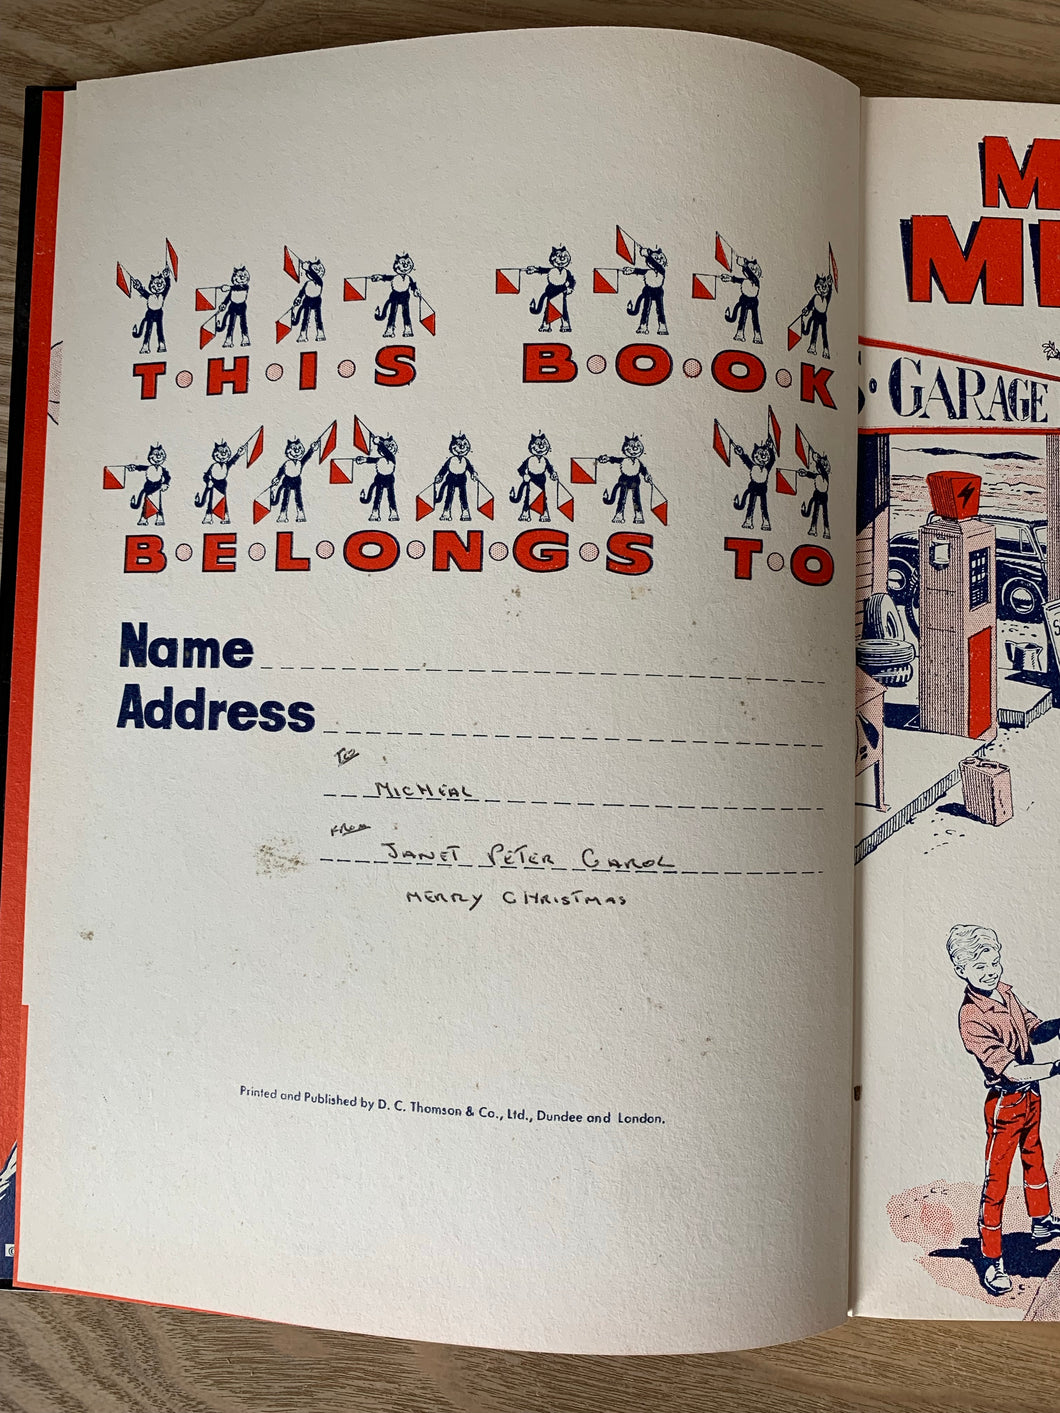 T·H·I·S B·O·O·K
B·E·L·O·N·G·S T·O
Name
Address
To
MICHEAL
FROM
JANET PETER CAROL
MERRY CHRISTMAS
Printed and Published by D. C. Thomson & Co., Ltd., Dundee and London.
M
MI
S· GARAGE
S
©